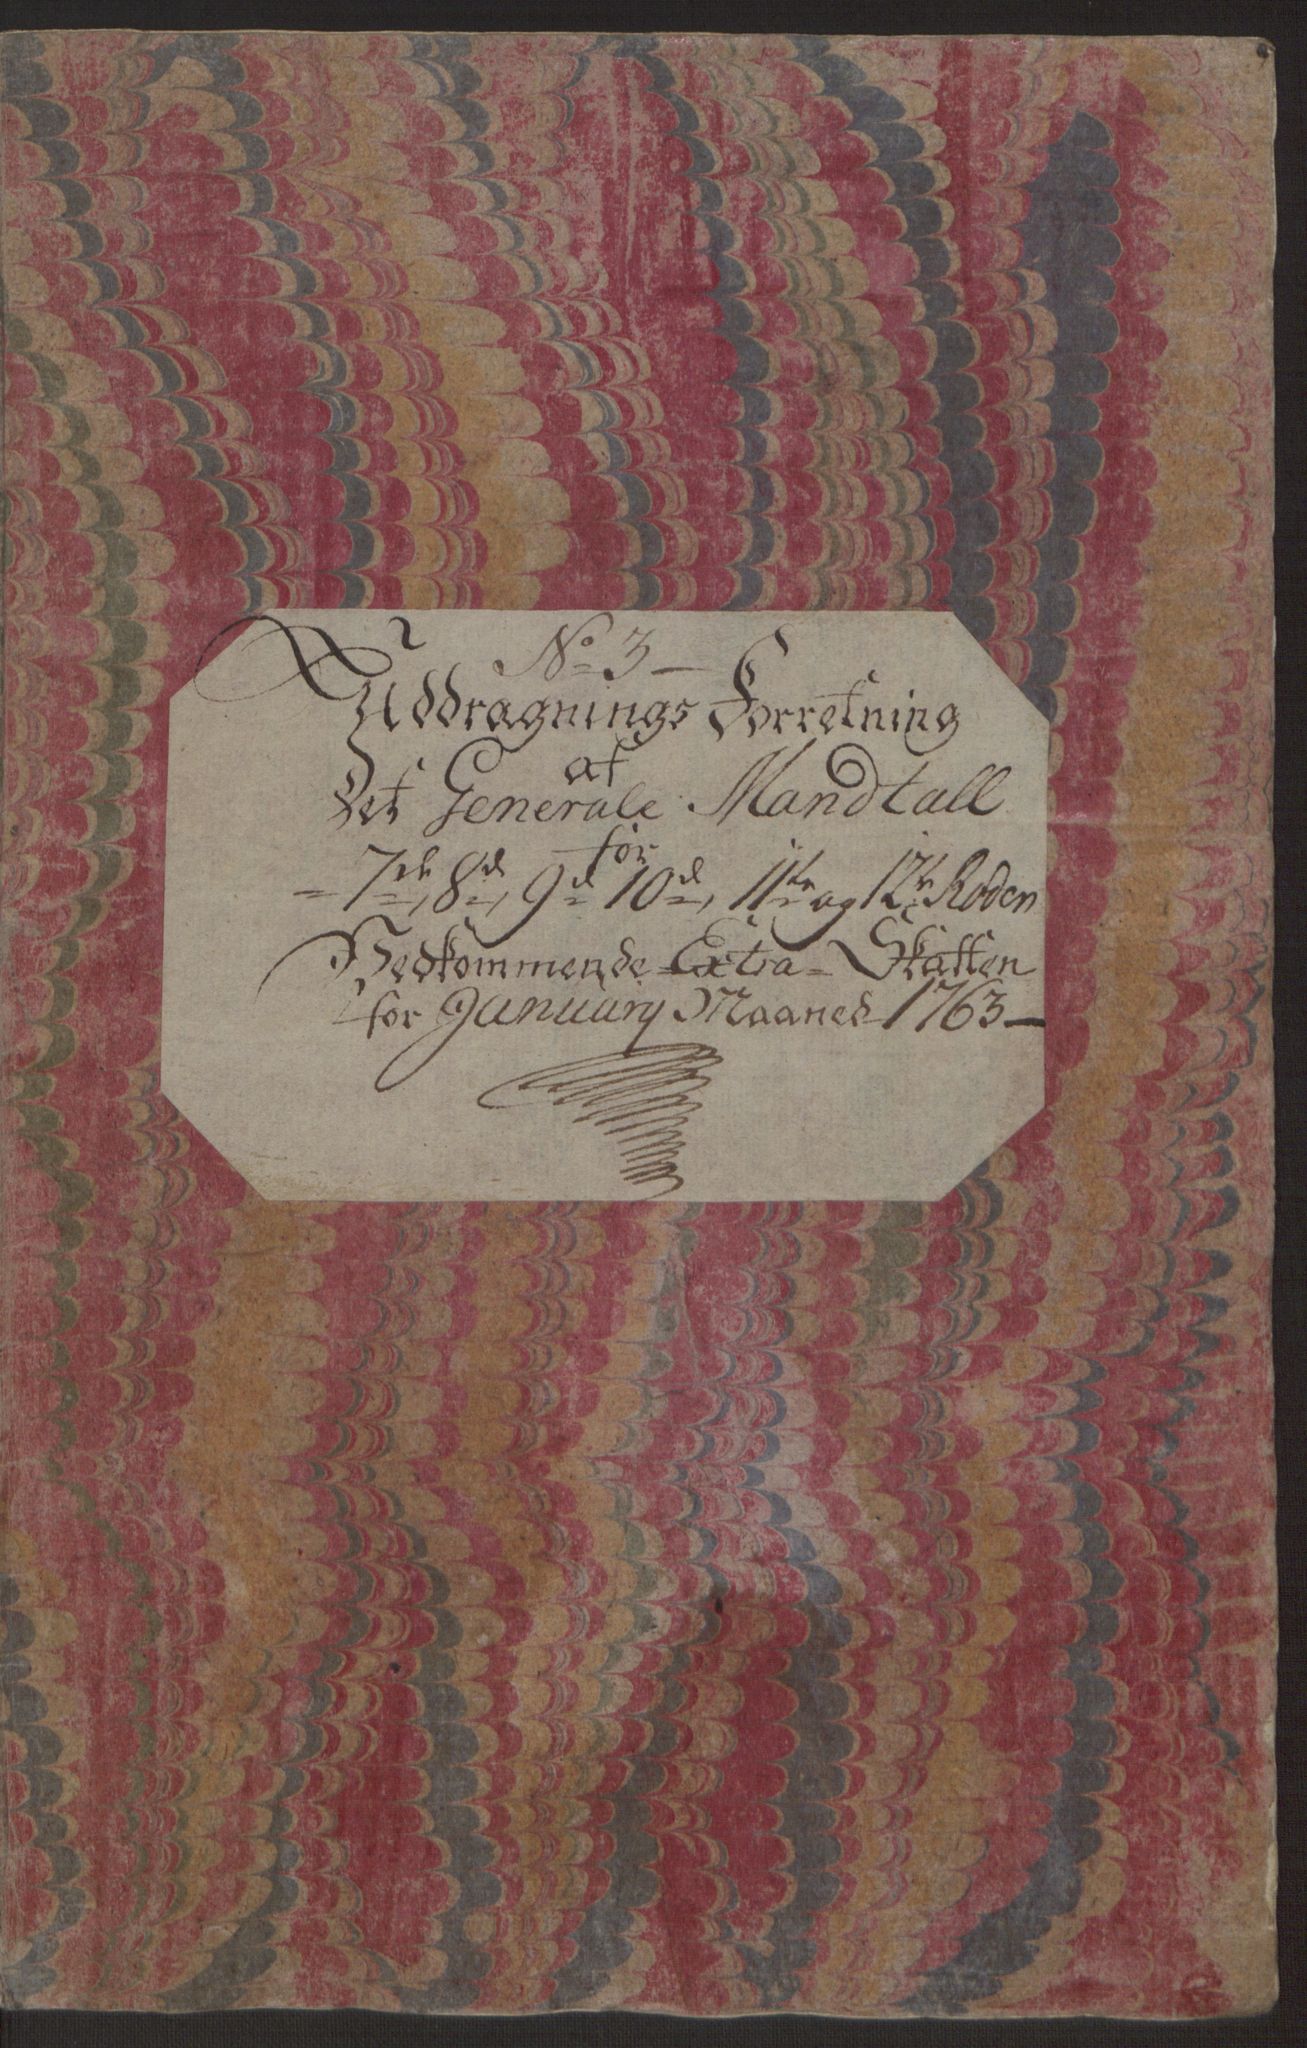 No 3
Uddragnings Forretning
af
Det Generale Mandtall
for
7de, 8d, 9d 10d, 11te og 12te Roden
Vedkommende Extra-Skatten
for January Maaned 1763